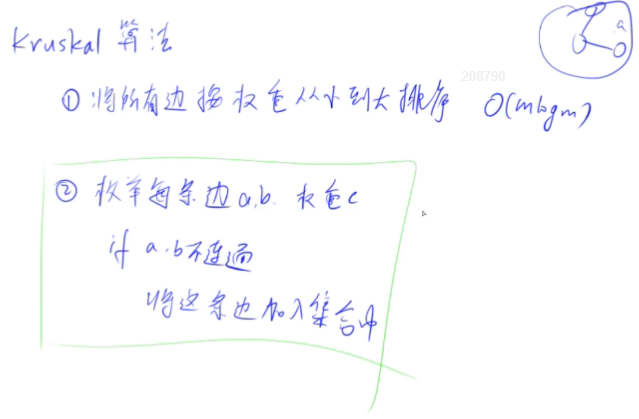 Kruskal 算法
a
208790
① 将所有边按权重从小到大排序 O(mlogm)
② 枚举每条边a,b、权重c
if a·b不连通
将这条边加入集合中